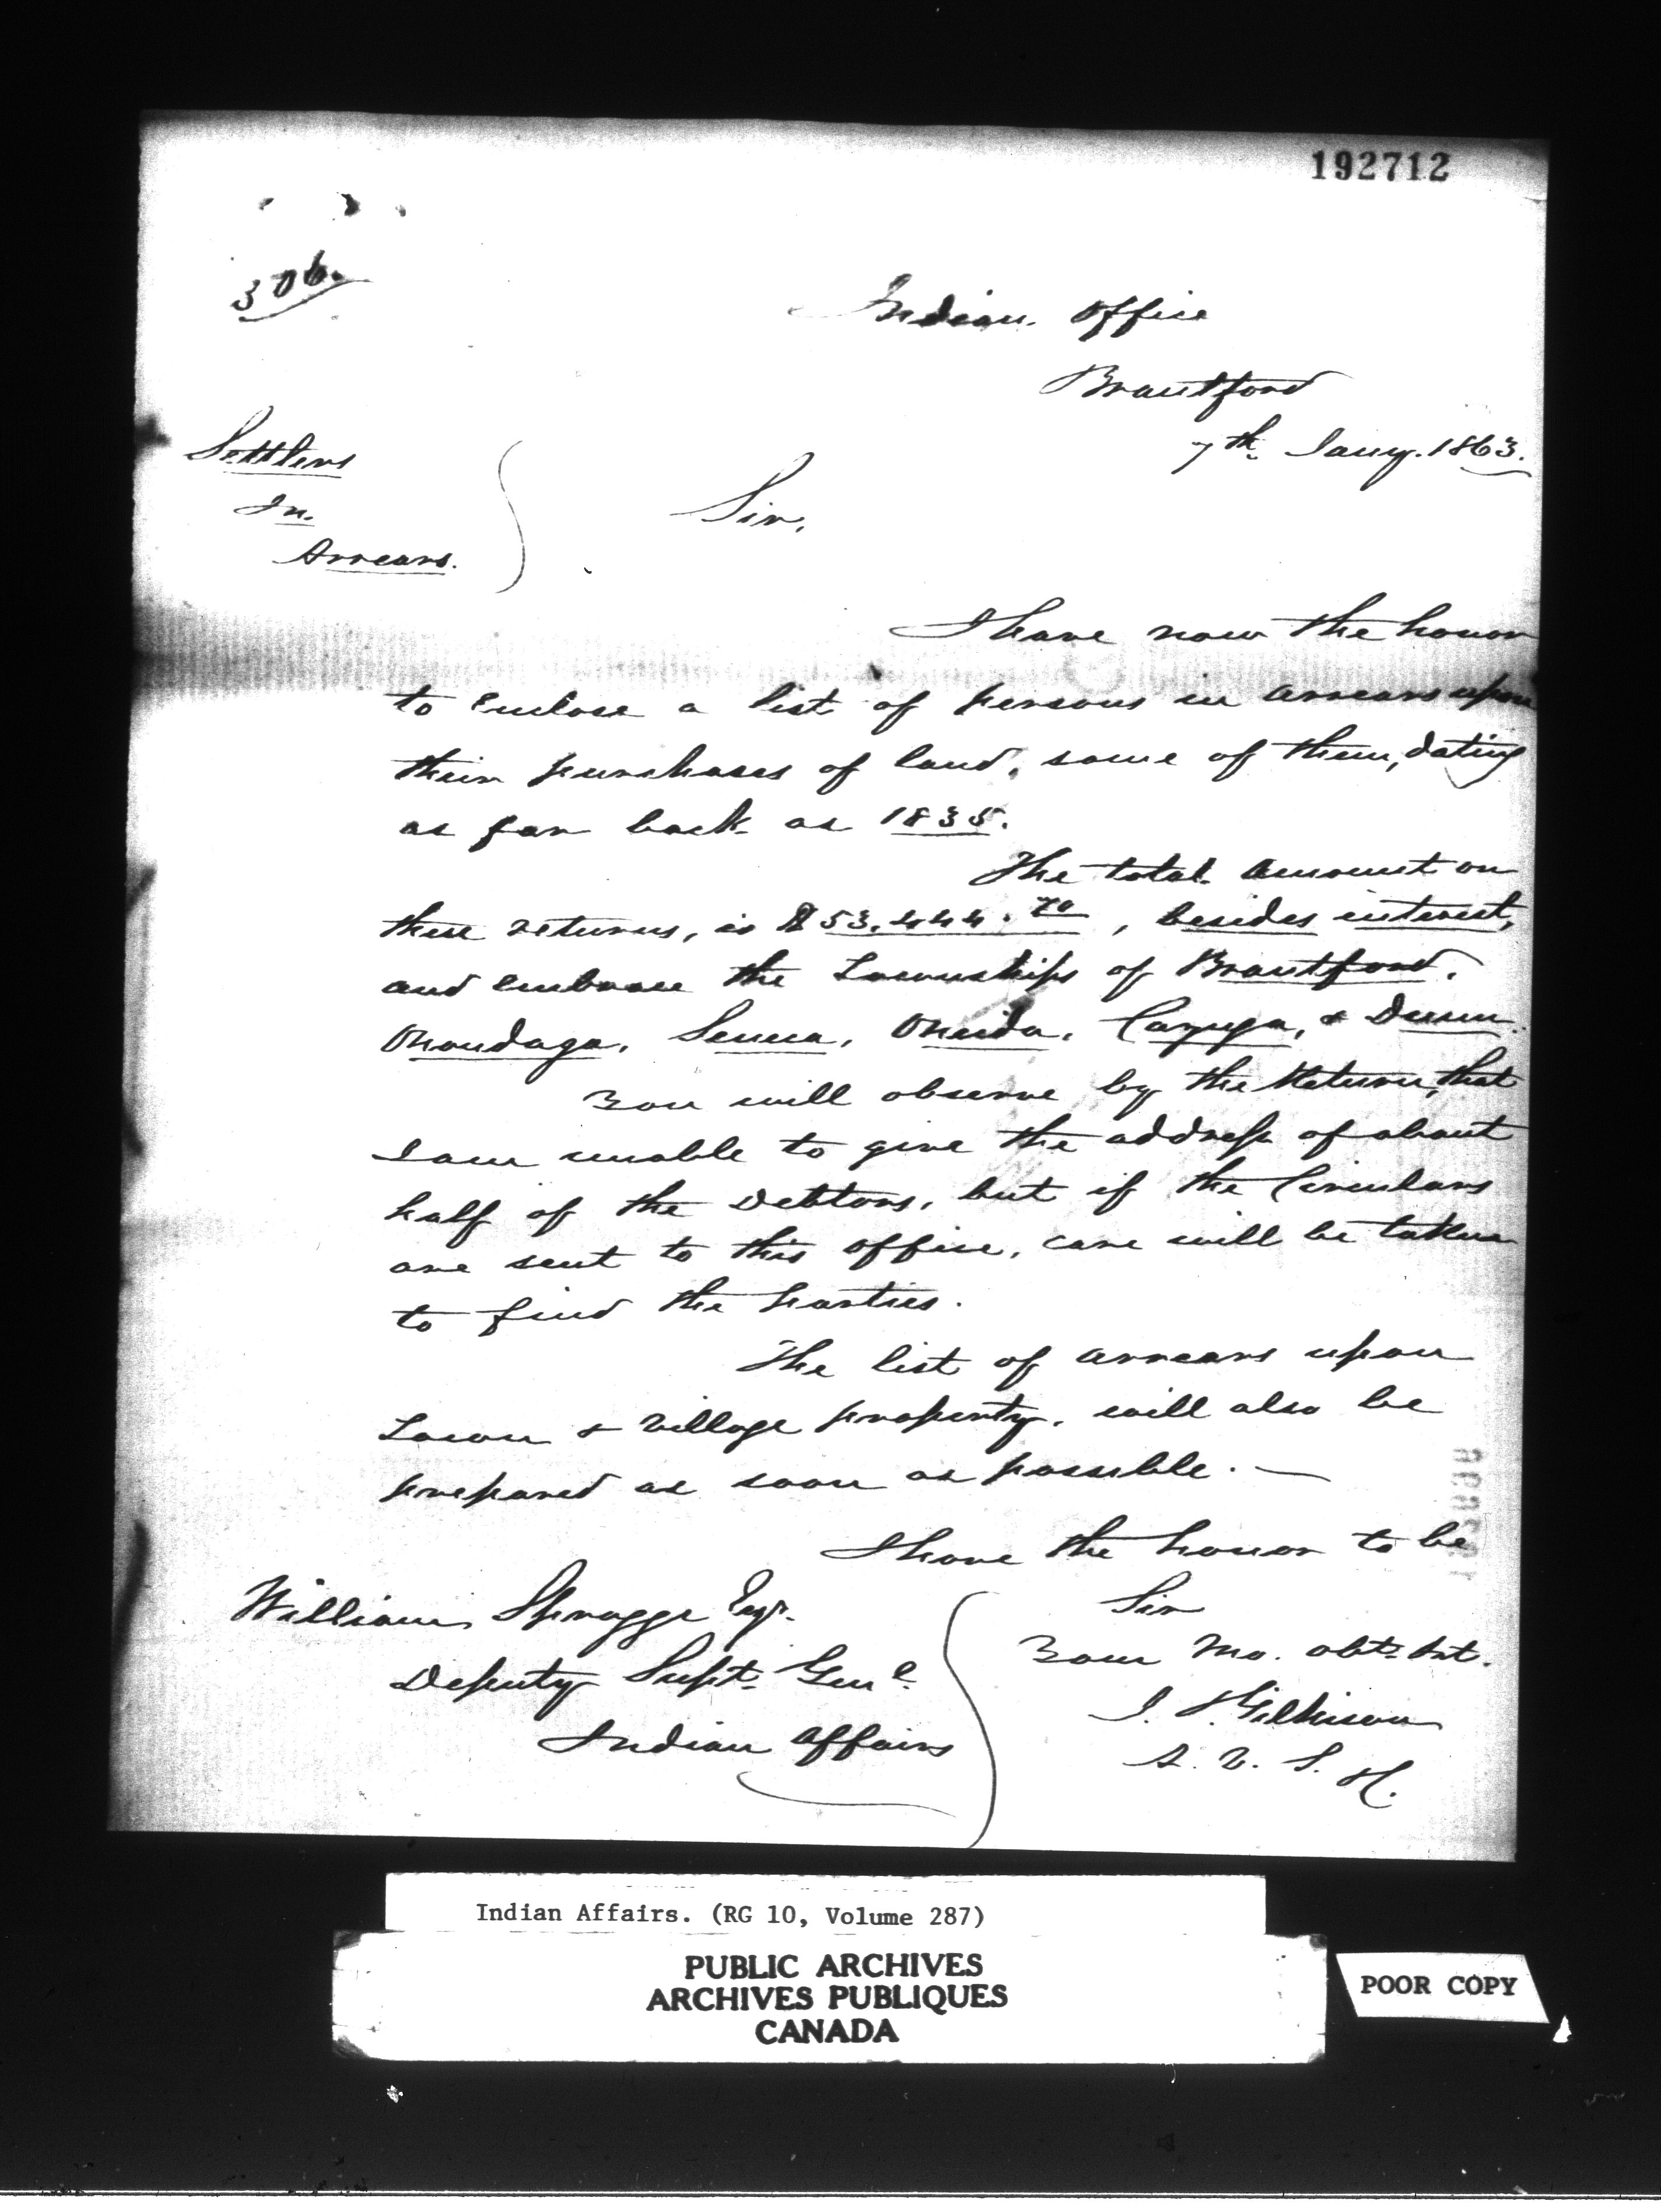 192712
306.
Indian Office
Brantford
7th Jany. 1863.
Settlers
In.
Arrears.
Sir,
I have now the honor
to Enclose a list of persons in arrears upon
their purchases of land, some of them, dating
as far back as 1835.
The total Amount on
these returns, is $53,444.70, besides interest,
and embrace the Townships of Brantford,
Onondaga, Seneca, Oneida, Cayuga, & Dunn.
You will observe by the Return, that
I am unable to give the address of about
half of the Debtors, but if the Circulars
are sent to this office, care will be taken
to find the parties.
The list of arrears upon
Town & Village property, will also be
prepared as soon as possible. —
I have the honor to be
Sir
Your Mo. obt. Svt.
J. T. Gilkison
William Spragge Esqr.
Deputy Supt. Genl.
Indian Affairs
Indian Affairs. (RG 10, Volume 287)
PUBLIC ARCHIVES
ARCHIVES PUBLIQUES
CANADA
POOR COPY